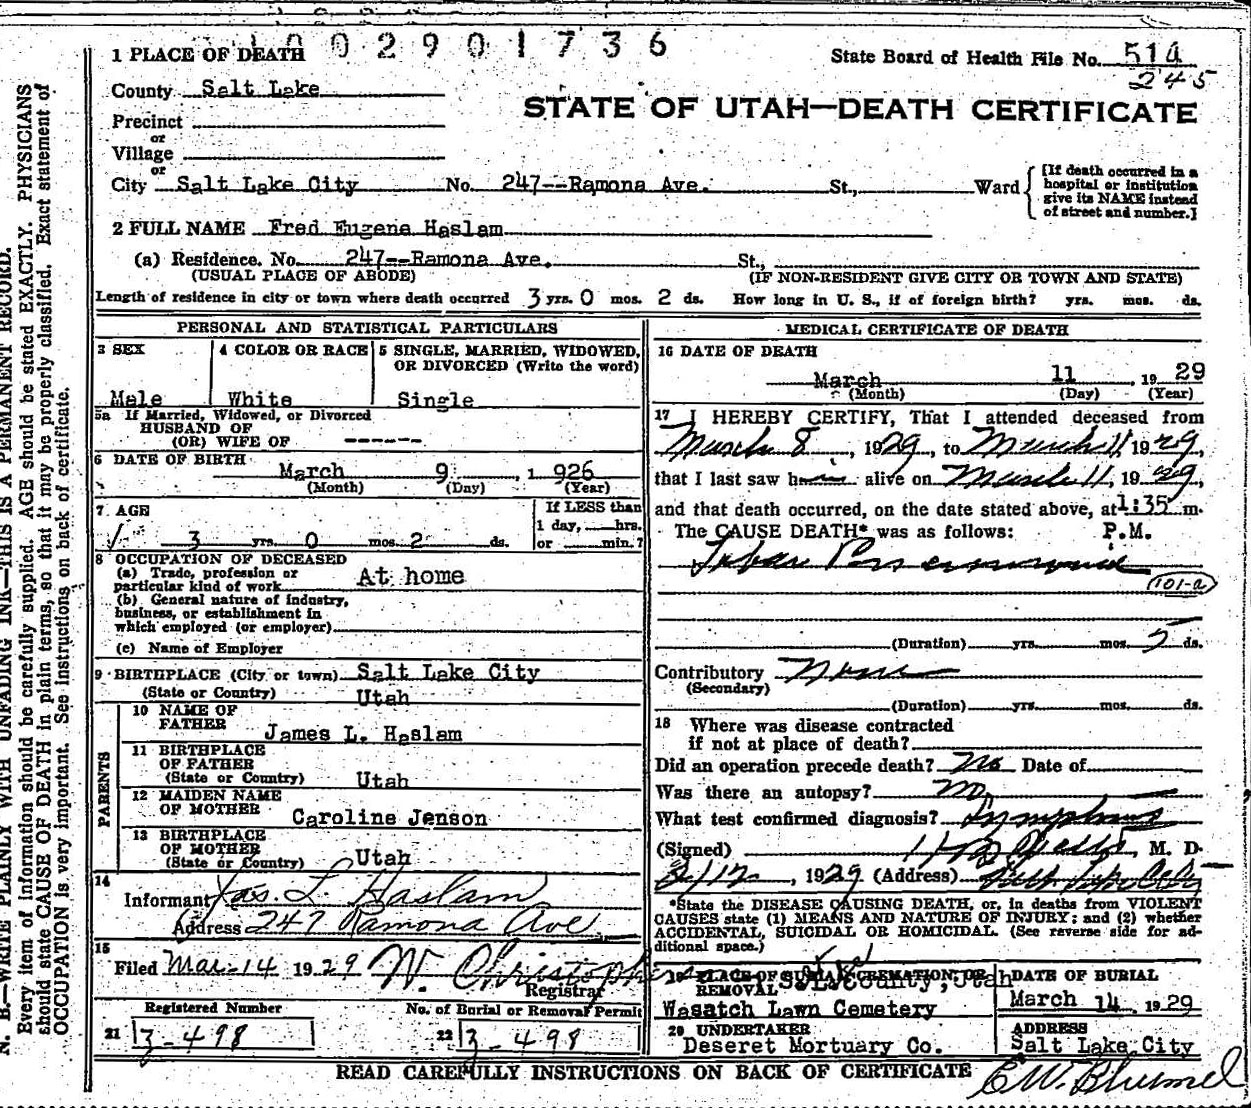 1002901736
1 PLACE OF DEATH
State Board of Health File No. 514
245
County Salt Lake
STATE OF UTAH—DEATH CERTIFICATE
Precinct
or
Village
or
City Salt Lake City No. 247--Ramona Ave. St., Ward
[If death occurred in a hospital or institution give its NAME instead of street and number.]
2 FULL NAME Fred Eugene Haslam
(a) Residence. No. 247--Ramona Ave. St.,
(USUAL PLACE OF ABODE) (IF NON-RESIDENT GIVE CITY OR TOWN AND STATE)
Length of residence in city or town where death occurred 3 yrs. 0 mos. 2 ds. How long in U. S., if of foreign birth? yrs. mos. ds.
PERSONAL AND STATISTICAL PARTICULARS
3 SEX
Male
4 COLOR OR RACE
White
5 SINGLE, MARRIED, WIDOWED,
OR DIVORCED (Write the word)
Single
5a If Married, Widowed, or Divorced
HUSBAND OF
(OR) WIFE OF ------
6 DATE OF BIRTH
March 9 1926
(Month) (Day) (Year)
7 AGE
3 yrs. 0 mos. 2 ds.
If LESS than
1 day, hrs.
or min.?
8 OCCUPATION OF DECEASED
(a) Trade, profession or
particular kind of work At home
(b) General nature of industry,
business, or establishment in
which employed (or employer)
(c) Name of Employer
9 BIRTHPLACE (City or town) Salt Lake City
(State or Country) Utah
PARENTS
10 NAME OF
FATHER
James L. Haslam
11 BIRTHPLACE
OF FATHER
(State or Country) Utah
12 MAIDEN NAME
OF MOTHER Caroline Jenson
13 BIRTHPLACE
OF MOTHER
(State or Country) Utah
14
Informant Jas. L. Haslam
Address 247 Ramona Ave
15
Filed Mar-14 1929 W. Christopher
Registrar
Registered Number
21 3-498
No. of Burial or Removal Permit
22 3-498
MEDICAL CERTIFICATE OF DEATH
16 DATE OF DEATH
March 11, 1929
(Month) (Day) (Year)
17 I HEREBY CERTIFY, That I attended deceased from
March 8, 1929, to March 11, 1929,
that I last saw him alive on March 11, 1929,
and that death occurred, on the date stated above, at 1:35 m.
The CAUSE DEATH* was as follows: P.M.
Lobar Pneumonia
101-a
(Duration) yrs. mos. 5 ds.
Contributory None
(Secondary)
(Duration) yrs. mos. ds.
18 Where was disease contracted
if not at place of death?
Did an operation precede death? No Date of
Was there an autopsy? No
What test confirmed diagnosis? Symptoms
(Signed) M. D.
3/12, 1929 (Address) Salt Lake City
*State the DISEASE CAUSING DEATH, or, in deaths from VIOLENT
CAUSES state (1) MEANS AND NATURE OF INJURY; and (2) whether
ACCIDENTAL, SUICIDAL OR HOMICIDAL. (See reverse side for ad-
ditional space.)
19 PLACE OF BURIAL, CREMATION, OR
REMOVAL S.L. County, Utah
Wasatch Lawn Cemetery
DATE OF BURIAL
March 14, 1929
20 UNDERTAKER
Deseret Mortuary Co.
ADDRESS
Salt Lake City
READ CAREFULLY INSTRUCTIONS ON BACK OF CERTIFICATE
N. B.—WRITE PLAINLY WITH UNFADING INK—THIS IS A PERMANENT RECORD.
Every item of information should be carefully supplied. AGE should be stated EXACTLY. PHYSICIANS
should state CAUSE OF DEATH in plain terms, so that it may be properly classified. Exact statement of
OCCUPATION is very important. See instructions on back of certificate.